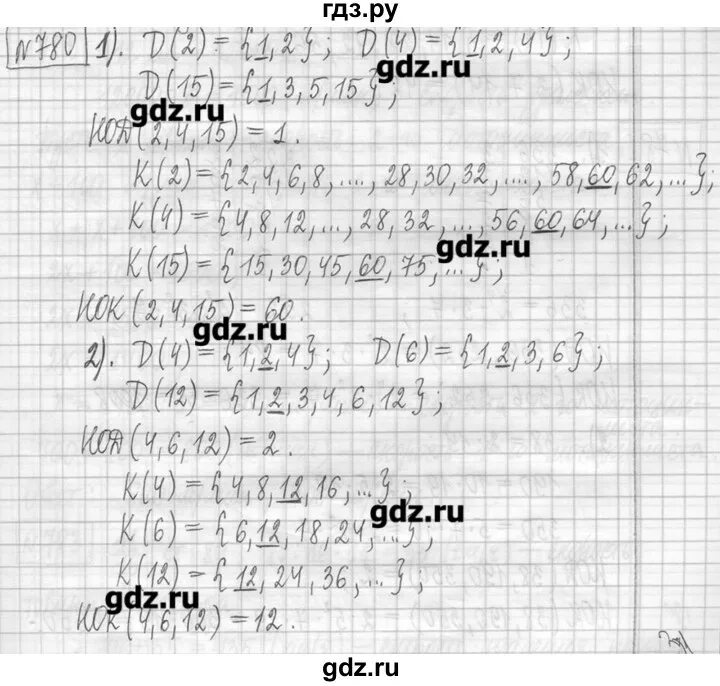 гдз.ру
№780 1). D(2) = {1,2}; D(4) = {1,2,4};
gdz.ru
D(15) = {1,3,5,15};
gdz.ru
НОД(2,4,15) = 1.
K(2) = {2,4,6,8,...., 28,30,32,...., 58,60,62,...};
K(4) = {4,8,12,..., 28,32,..., 56,60,64,...};
gdz.ru
K(15) = {15,30,45,60,75,...};
НОК(2,4,15) = 60.
gdz.ru
2). D(4) = {1,2,4}; D(6) = {1,2,3,6};
D(12) = {1,2,3,4,6,12};
НОД(4,6,12) = 2.
K(4) = {4,8,12,16,...};
gdz.ru
K(6) = {6,12,18,24,...};
K(12) = {12,24,36,...};
gdz.ru
НОК(4,6,12) = 12.
gdz.ru